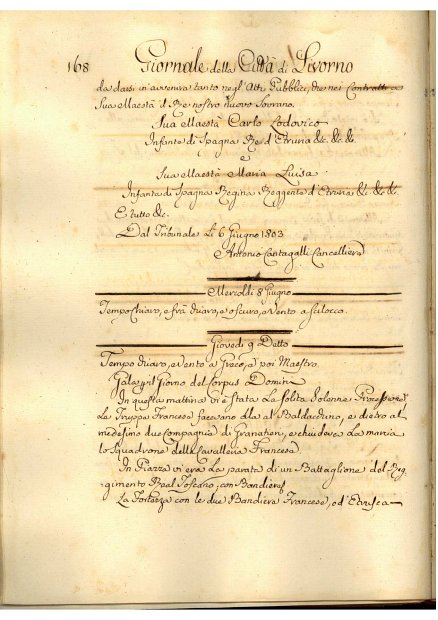 168 Giornale della Città di Livorno
da darsi in avvenire tanto negl'Atti Pubblici, che nei Contratti a
Sua Maestà il Re nostro nuovo Sovrano.
Sua Maestà Carlo Lodovico
Infante di Spagna Re d'Etruria &c. &c. &c.
e
Sua Maestà Maria Luisa
Infanta di Spagna Regina Reggente d'Etruria &c. &c. &c.
E tutto &c.
Dal Tribunale Li 6 Giugno 1803
Antonio Cantagalli Cancelliere
Mercoldì 8 Giugno
Tempo Chiaro, e frà chiaro, e oscuro, e Vento a Scilocco.
Giovedì 9 Detto
Tempo chiaro, e Vento a Greco, e poi Maestro.
Gala Giorno del Corpus Domini
In questa mattina vi è stata La solita Solenne Processione
La Truppa Francese facevano ala al Baldacchino, e dietro al
medesimo due Compagnie di Granatieri, e chiudeva La marcia
lo Squadrone della Cavalleria Francese
In Piazza vi era La parata di un Battaglione del Reg=
gimento Real Toscano, con Bandiera
La Fortezza con le due Bandiere Francese, ed Etrusca